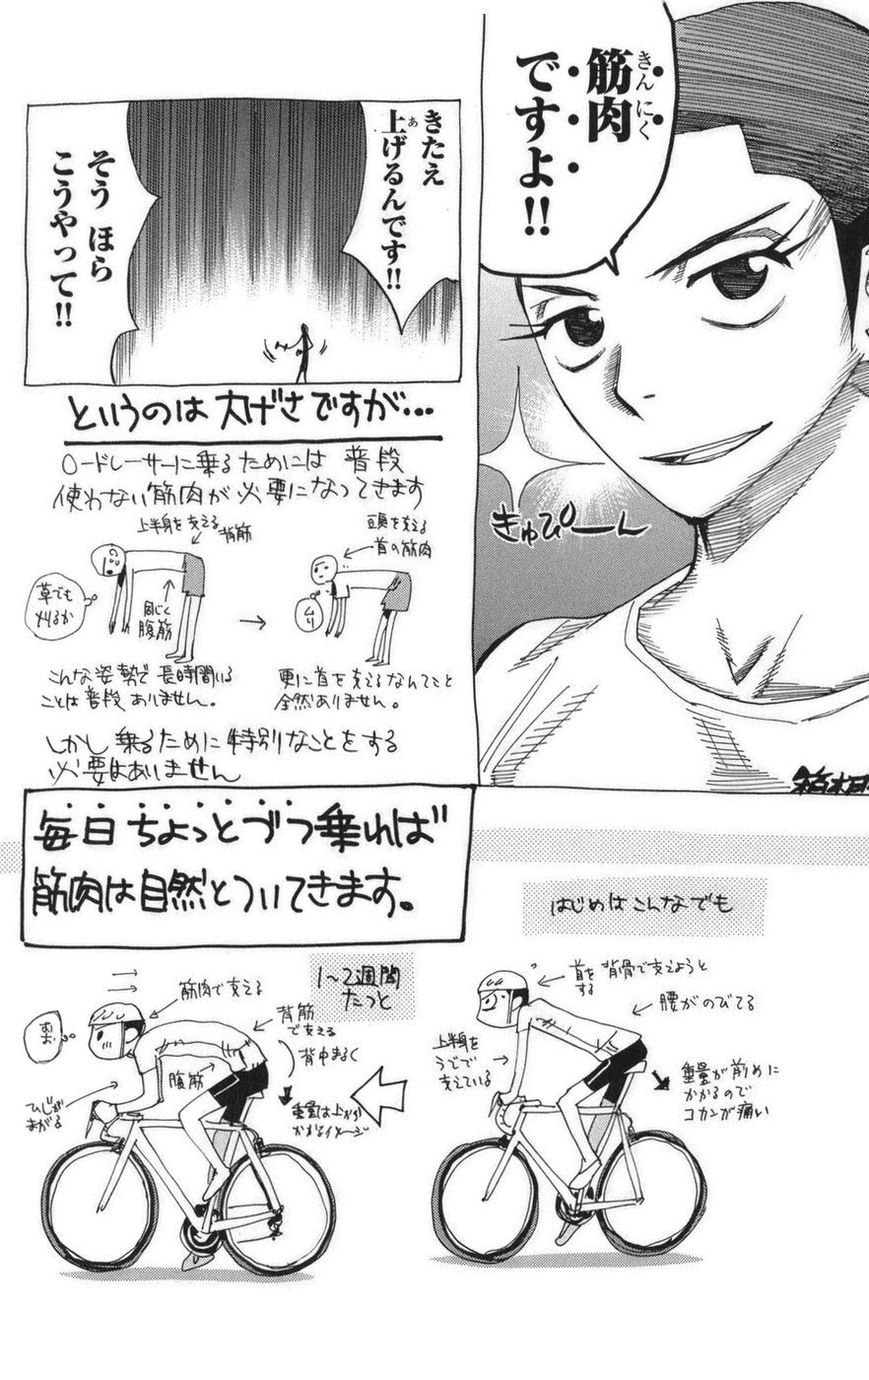 筋肉
きんにく
ですよ!!
きゅぴーん
きたえ
上げるんです!!
あ
そう ほら
こうやって!!
というのは 大げさですが…
ロードレーサーに乗るためには 普段
使わない筋肉が必要になってきます
上半身を支える
背筋
草でも
刈るか
同じく
腹筋
頭を支える
首の筋肉
ムリ
こんな姿勢で 長時間いる
ことは普段ありません。
更に首を支えるなんてこと
全然ありません。
しかし 乗るために 特別なことをする
必要はありません
毎日 ちょっとづつ乗れば
筋肉は自然とついてきます。
はじめはこんなでも
首を 背骨で支えようと
する
腰がのびてる
上半身を
うでで
支えている
重量が前めに
かかるので
コカンが痛い
1〜2週間
たつと
筋肉で支える
背筋
で支える
背中まるく
腹筋
ひじが
まがる
重量は上から
かかるイメージ